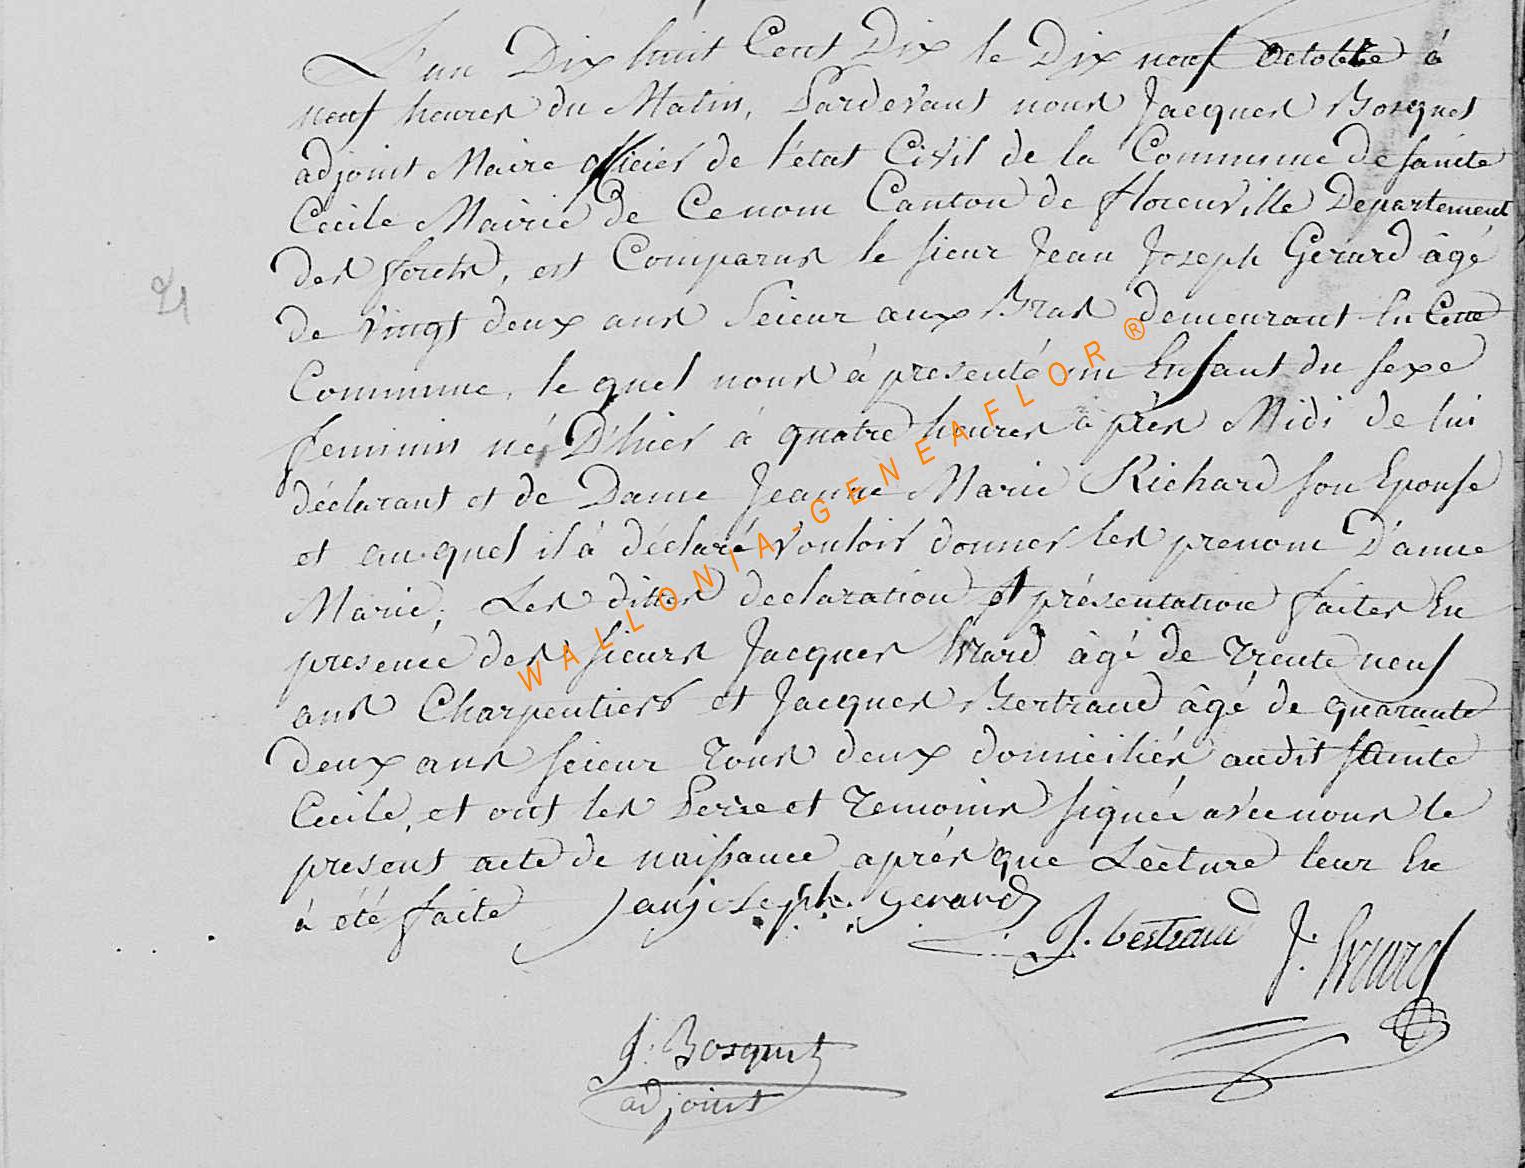 L'an Dix huit Cent Dix le Dix neuf Octobre à
neuf heures du Matin, Pardevant nous Jacques Bosquet
adjoint Maire officier de l'état Civil de la Commune de Sainte
Cecile Mairie de Ce nom Canton de florenville Departement
des forets, est Comparus le sieur Jean Joseph Gerard âgé
de vingt deux ans Scieur aux Bras demeurant En Cette
Commune, le quel nous à presenté un Enfant du sexe
feminin né D'hier à quatre heures à près Midi de lui
déclarant et de Dame Jeanne Marie Richard son Epouse
et au quel il à déclaré vouloir donner les prenom D'anne
Marie; Les dittes declaration et présentation faites En
presence des sieurs Jacques Evrard âgé de Trente neuf
ans Charpentiers et Jacques Bertrand âgé de quarante
deux ans scieur Tous deux domiciliés audit sainte
Cecile, et ont les Perre et Temoins signés avec nous le
present acte de naissance après que Lecture leur En
à été faite Janjoseph Gerard
J. bertrand J. Evrard
J. Bosquet
adjoint
WALLONIA-GENEAFLOR ®